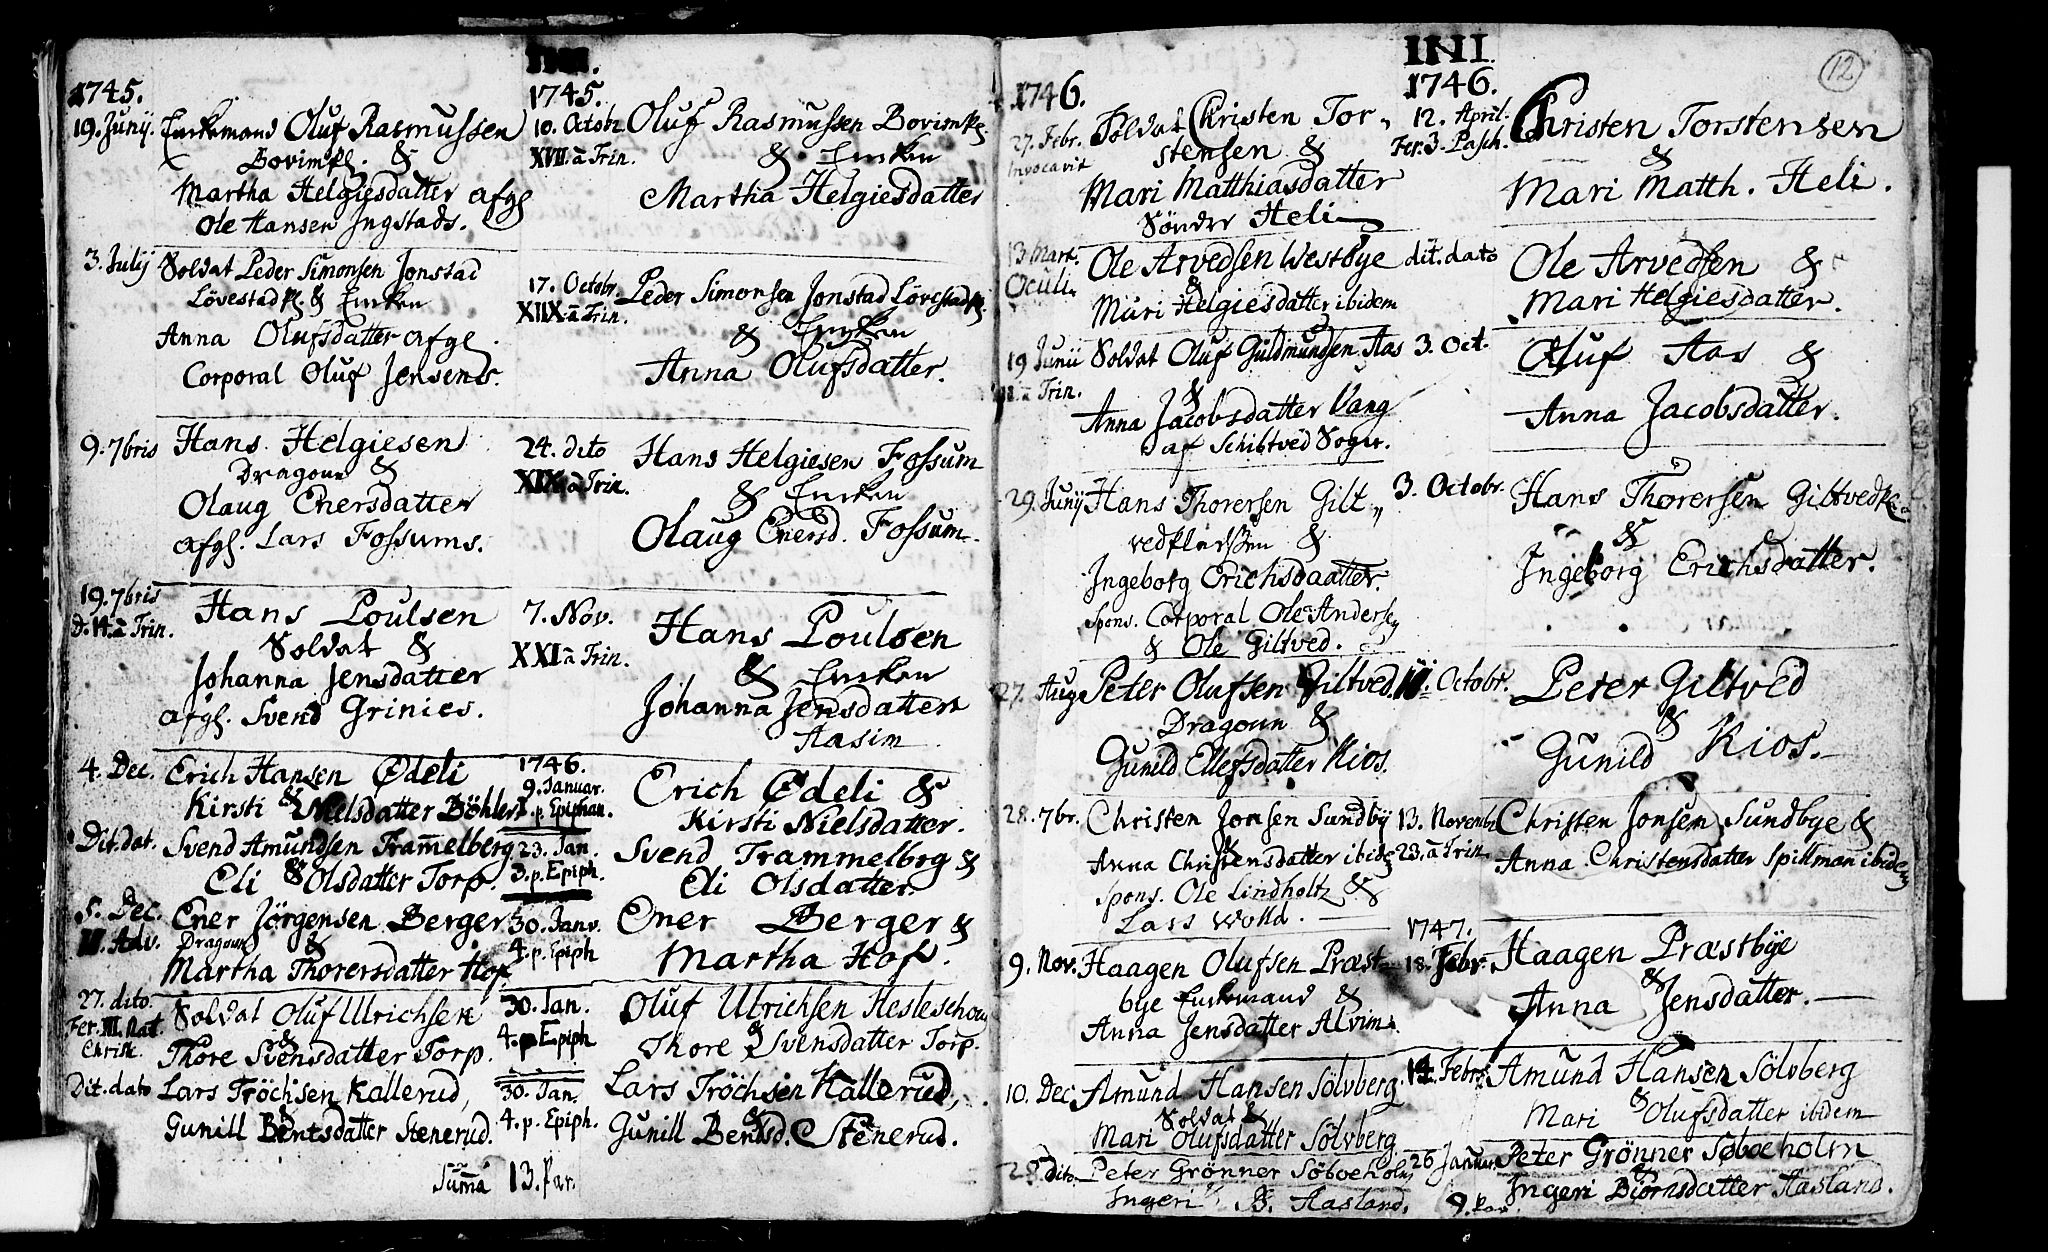 1745.
19. Junij. Enckemand Oluf Rasmussen
Bovimkl. &
Martha Helgiesdatter afgl
Ole Hansen Ingstads.
3. Julij Soldat Peder Simonsen Jonstad
Lövestadkl. & Encken
Anna Olufsdatter afgl.
Corporal Oluf Jensens.
9. 7bris Hans Helgiesen
Dragoun &
Olaug Enersdatter
afgl. Lars Fossums.
19. 7bris
D. 14. â Trin.
Hans Poulsen
Soldat &
Johanna Jensdatter
afgl. Svend Grinies.
4. Dec. Erich Hansen Ødeli
&
Kirsti Nielsdatter Böhler
Dit. dat. Svend Amundsen Tram̄elberg
&
Eli Olsdatter Torp.
5. Dec. Ener Jörgensen Berger
II. Adv. Dragoun &
Martha Thorersdatter Hof.
27. dito.
Fer. III. Nat.
Christi.
Soldat Oluf Ulrichsen
&
Thore Svensdatter Torp.
Dit. dato Lars Tröchsen Kallerud,
&
Gunill Bentsdatter Stenerud.
1745.
10. Octobr. Oluf Rasmussen Bovimkl.
XVII. â Trin. & Encken
Martha Helgiesdatter
17. Octobr. Peder Simonsen Jonstad Lövestadkl.
XIIX. â Trin.
& Encken
Anna Olufsdatter.
24. dito Hans Helgiesen Fossum
XIX. â Trin. & Encken
Olaug Enersd. Fossum.
7. Nov. Hans Poulsen
XXI â Trin. & Encken
Johanna Jensdatter
Aasim
1746.
9. Januar. Erich Ødeli &
1. p. Epiphan. Kirsti Nielsdatter.
23. Jan. Svend Trammelbrg &
3. p. Epiph. Eli Olsdatter.
30. Janv. Ener Berger &
4. p. Epiph Martha Hof.
30. Jan. Oluf Ulrichsen Hesleschou
4. p Epiph &
Thore Svensdatter Torp.
30. Jan. Lars Tröchsen Kallerud,
4. p. Epiph. &
Gunill Bentsd. Stenerud.
Sum̄a 13. Par.
12
1746.
27. Febr. Soldat Christen Tor-
Invocavit stensen &
Mari Matthiasdatter
Sönder Heli
13 Mart. Ole Arvedsen Westbye
Oculi. &
Mari Helgiesdatter ibidem
19 Junii Soldat Oluf Guldmundsen Aas
â Trin. &
Anna Jacobsdatter Vang
af Schibtved Sogn.
29. Junij Hans Thorersen Gilt„
vedpladssen &
Ingeborg Erichsdaatter.
Spons. Corporal Ole Andersen
& Ole Giltved.
27. Aug Peter Olufsen Giltved.
Dragoun &
Gunild Ellefsdatter Kios.
28. 7br. Christen Jonsen Sundby
&
Anna Christensdatter ibidem
Spons. Ole Lindholtz &
Lars Wolld.
9. Nov. Haagen Olufsen Præst-
bye Enckemand &
Anna Jensdatter Alvim.
10. Dec Amund Hansen Sölvberg.
Soldat &
Mari Olufsdatter Sölvberg
28. dito. Peter Grönner Söboeholm
Ingeri & B. Aasland.
IIII.
1746.
12. April. Christen Torstensen
Fer. 3. Pasch. &
Mari Matth. Heli.
dit. dato Ole Arvedsen &
Mari Helgiesdatter.
3. Oct. Oluf Aas &
Anna Jacobsdatter.
3. Octobr. Hans Thorersen Giltvedkl.
&
Ingeborg Erichsdatter.
Octobr. Peter Giltved
&
Gunild Kios.
13. Novembr. Christen Jonsen Sundbye &
23. â Trin. Anna Christensdatter Spillman ibidem
1747.
18. Febr. Haagen Præstbye
&
Anna Jensdatter.
14. Febr. Amund Hansen Sölvberg
&
Mari Olufsdatter ibidem
26 Januar. Peter Grönner Søboeholm
&
Ingeri Biörnsdatter Aasland.
9. Par.